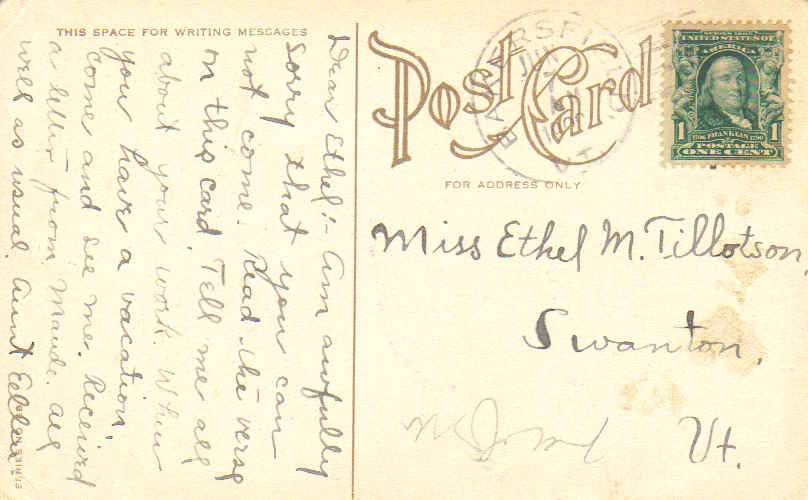 THIS SPACE FOR WRITING MESSAGES
Dear Ethel:- Am awfully
sorry that you can
not come. Read the verse
on this card. Tell me all
about your work. When
you have a vacation,
come and see me. Received
a letter from Maude. All
well as usual. Aunt
Post Card
FOR ADDRESS ONLY
BAKERSFI
JUN
VT.
SERIES 1902
UNITED STATES OF
AMERICA
1706 FRANKLIN 1790
1 POSTAGE 1
ONE CENT
Miss Ethel M. Tillotson,
Swanton,
Vt.